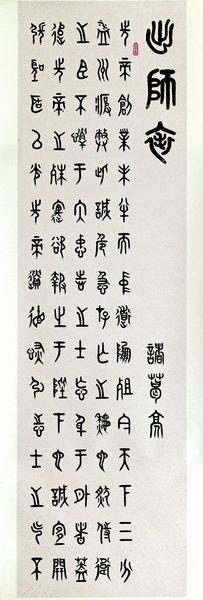 出師表
諸葛亮
先帝創業未半而中道崩殂今天下三分
益州疲弊此誠危急存亡之秋也然侍衛
之臣不懈于内忠志之士忘身于外者蓋
追先帝之殊遇欲報之于陛下也誠宜開
張聖聽以光先帝遺德恢弘志士之氣不